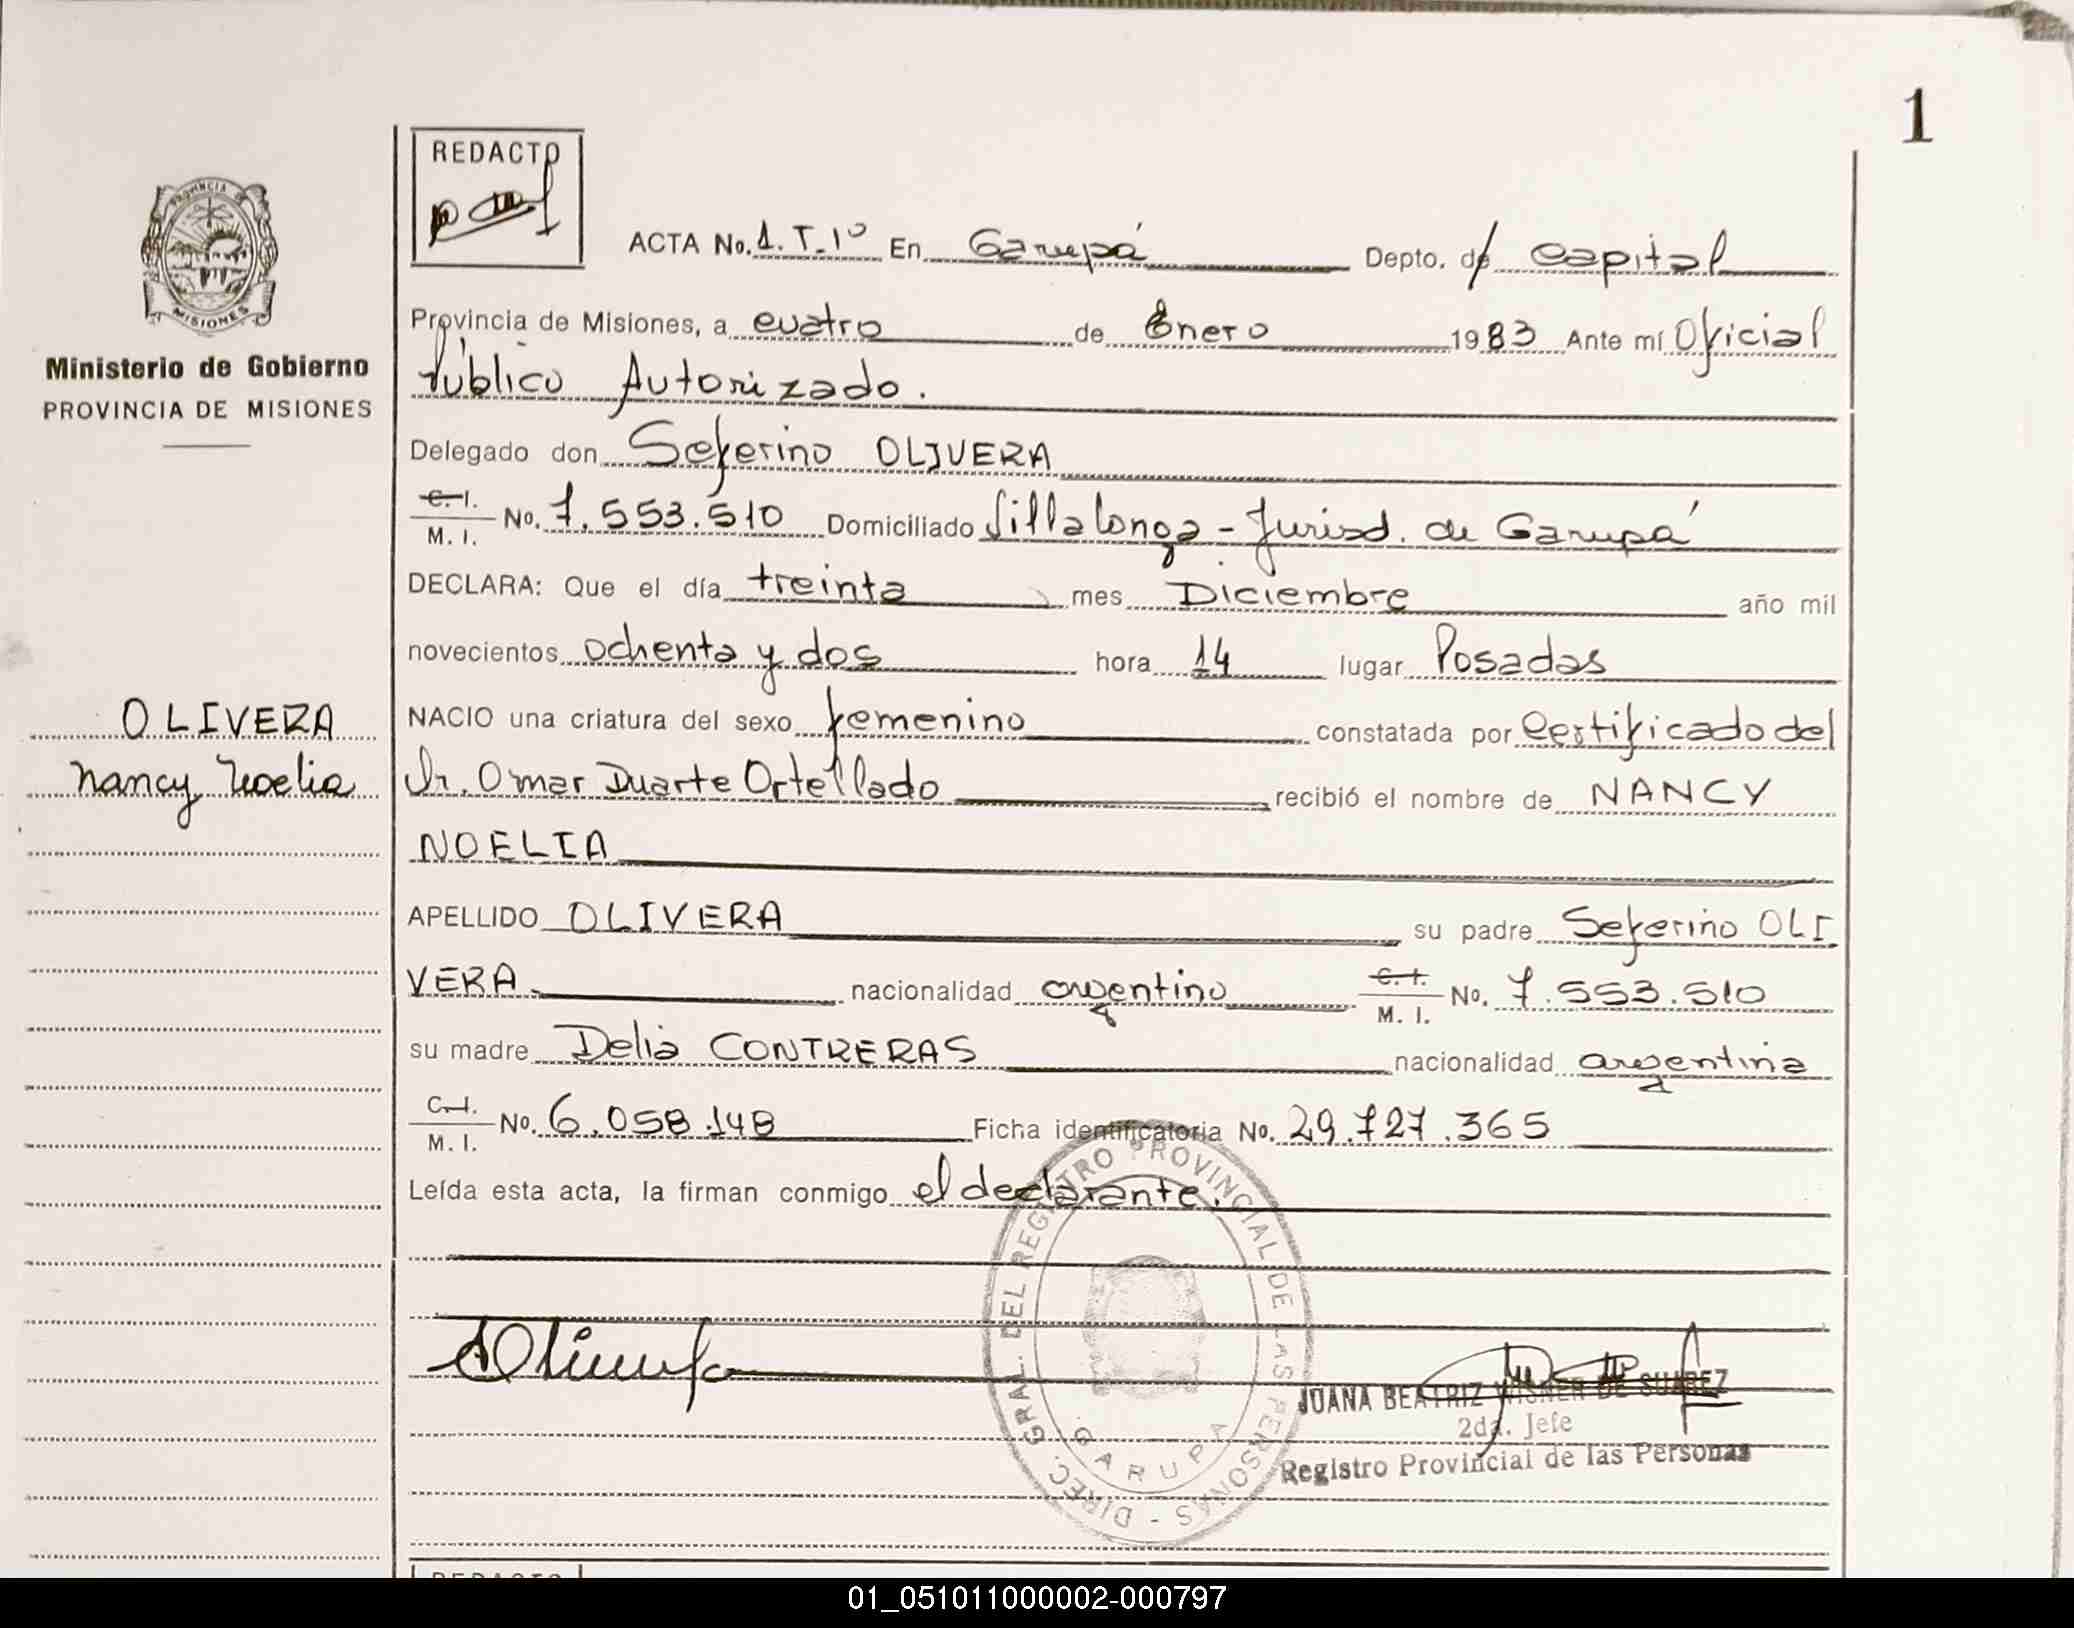 1
REDACTO
PROVINCIA
MISIONES
Ministerio de Gobierno
PROVINCIA DE MISIONES
ACTA No. 1. T.1º En Garupá Depto. de Capital
Provincia de Misiones, a cuatro de Enero 1983 Ante mí Oficial
Público Autorizado.
Delegado don Seferino OLIVERA
C. I.
M. I. No. 7.553.510 Domiciliado Villalonga - Jurisd. de Garupá
DECLARA: Que el día treinta mes Diciembre año mil
novecientos ochenta y dos hora 14 lugar Posadas
OLIVERA
Nancy Noelia
NACIO una criatura del sexo femenino constatada por Certificado del
Dr. Omar Duarte Ortellado recibió el nombre de NANCY
NOELIA
APELLIDO OLIVERA su padre Seferino OLI
VERA. nacionalidad argentino C. I.
M. I. No. 7.553.510
su madre Delia CONTRERAS nacionalidad argentina
C. I.
M. I. No. 6.058.148 Ficha identificatoria No. 29.727.365
Leída esta acta, la firman conmigo el declarante.
DIREC. GRAL. DEL REGISTRO PROVINCIAL DE LAS PERSONAS -
GARUPA
JUANA BEATRIZ WISNER DE SUAREZ
2da. Jefe
Registro Provincial de las Personas
REDACTO
01_051011000002-000797